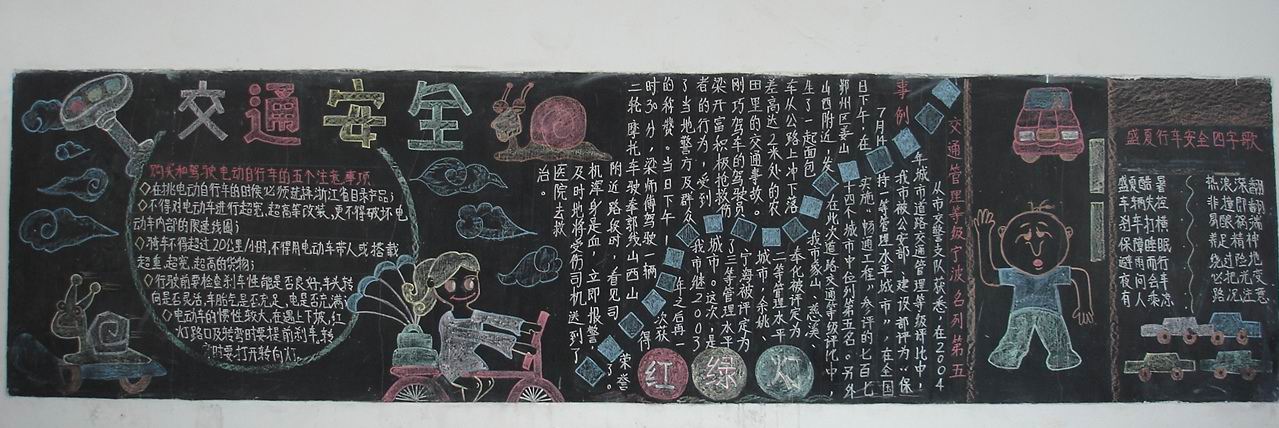 交通安全
购买和驾驶电动自行车的五个注意事项
◇在挑电动自行车的时候必须选择浙江省目录产品;
◇不得对电动车进行超宽、超高等改装,更不得破坏电
动车内部的限速线圈;
◇骑车不得超过20公里/小时,不得用电动车带人或搭载
超重、超宽、超高的货物;
◇行驶前要检查刹车性能是否良好,车头转
向是否灵活,车胎气是否充足、电是否充满;
◇电动车的惯性较大,在遇上下坡,红
灯路口及转弯时要提前刹车,转
弯时要打开转向灯。
事例
7月14
日下午,在
鄞州区姜山
山西附近,发
生了一起面包
车从公路上冲下落
差高达2米处的农
田里的交通事故。
刚巧驾车的驾驶员
梁开富积极抢救伤
者的行为,受到
了当地警方及群众
的称赞。当日下午1
时30分,梁师傅驾驶一辆
二轮摩托车驶奉郭线山西山
附近路段时,看见司
机浑身是血,立即报警,
及时地将受伤司机送到了
医院去救
治。
交通管理等级宁波名列第五
从市交警支队获悉,在2004
年城市道路交通管理等级评比中,
我市被公安部、建设部评为“保
持二等管理水平城市”,在全国
实施“畅通工程”参评的七百七
十四个城市中位列第五名。另外
在此次道路交通等级评比中,
我市象山、慈溪、
奉化被评定为
二等管理水平
城市,余姚、
宁海被评定为
了三等管理水平
城市。这次,是
我市继2003
年之后再一
次获
得
荣誉
了。
红绿灯
盛夏行车安全四字歌
盛夏酷暑 热浪滚翻
车辆打横 易眼即祸
保障睡眠 养足精神
避雨而行 绕过险地
夜间会车 灯把光变
有人乘凉 路况注意